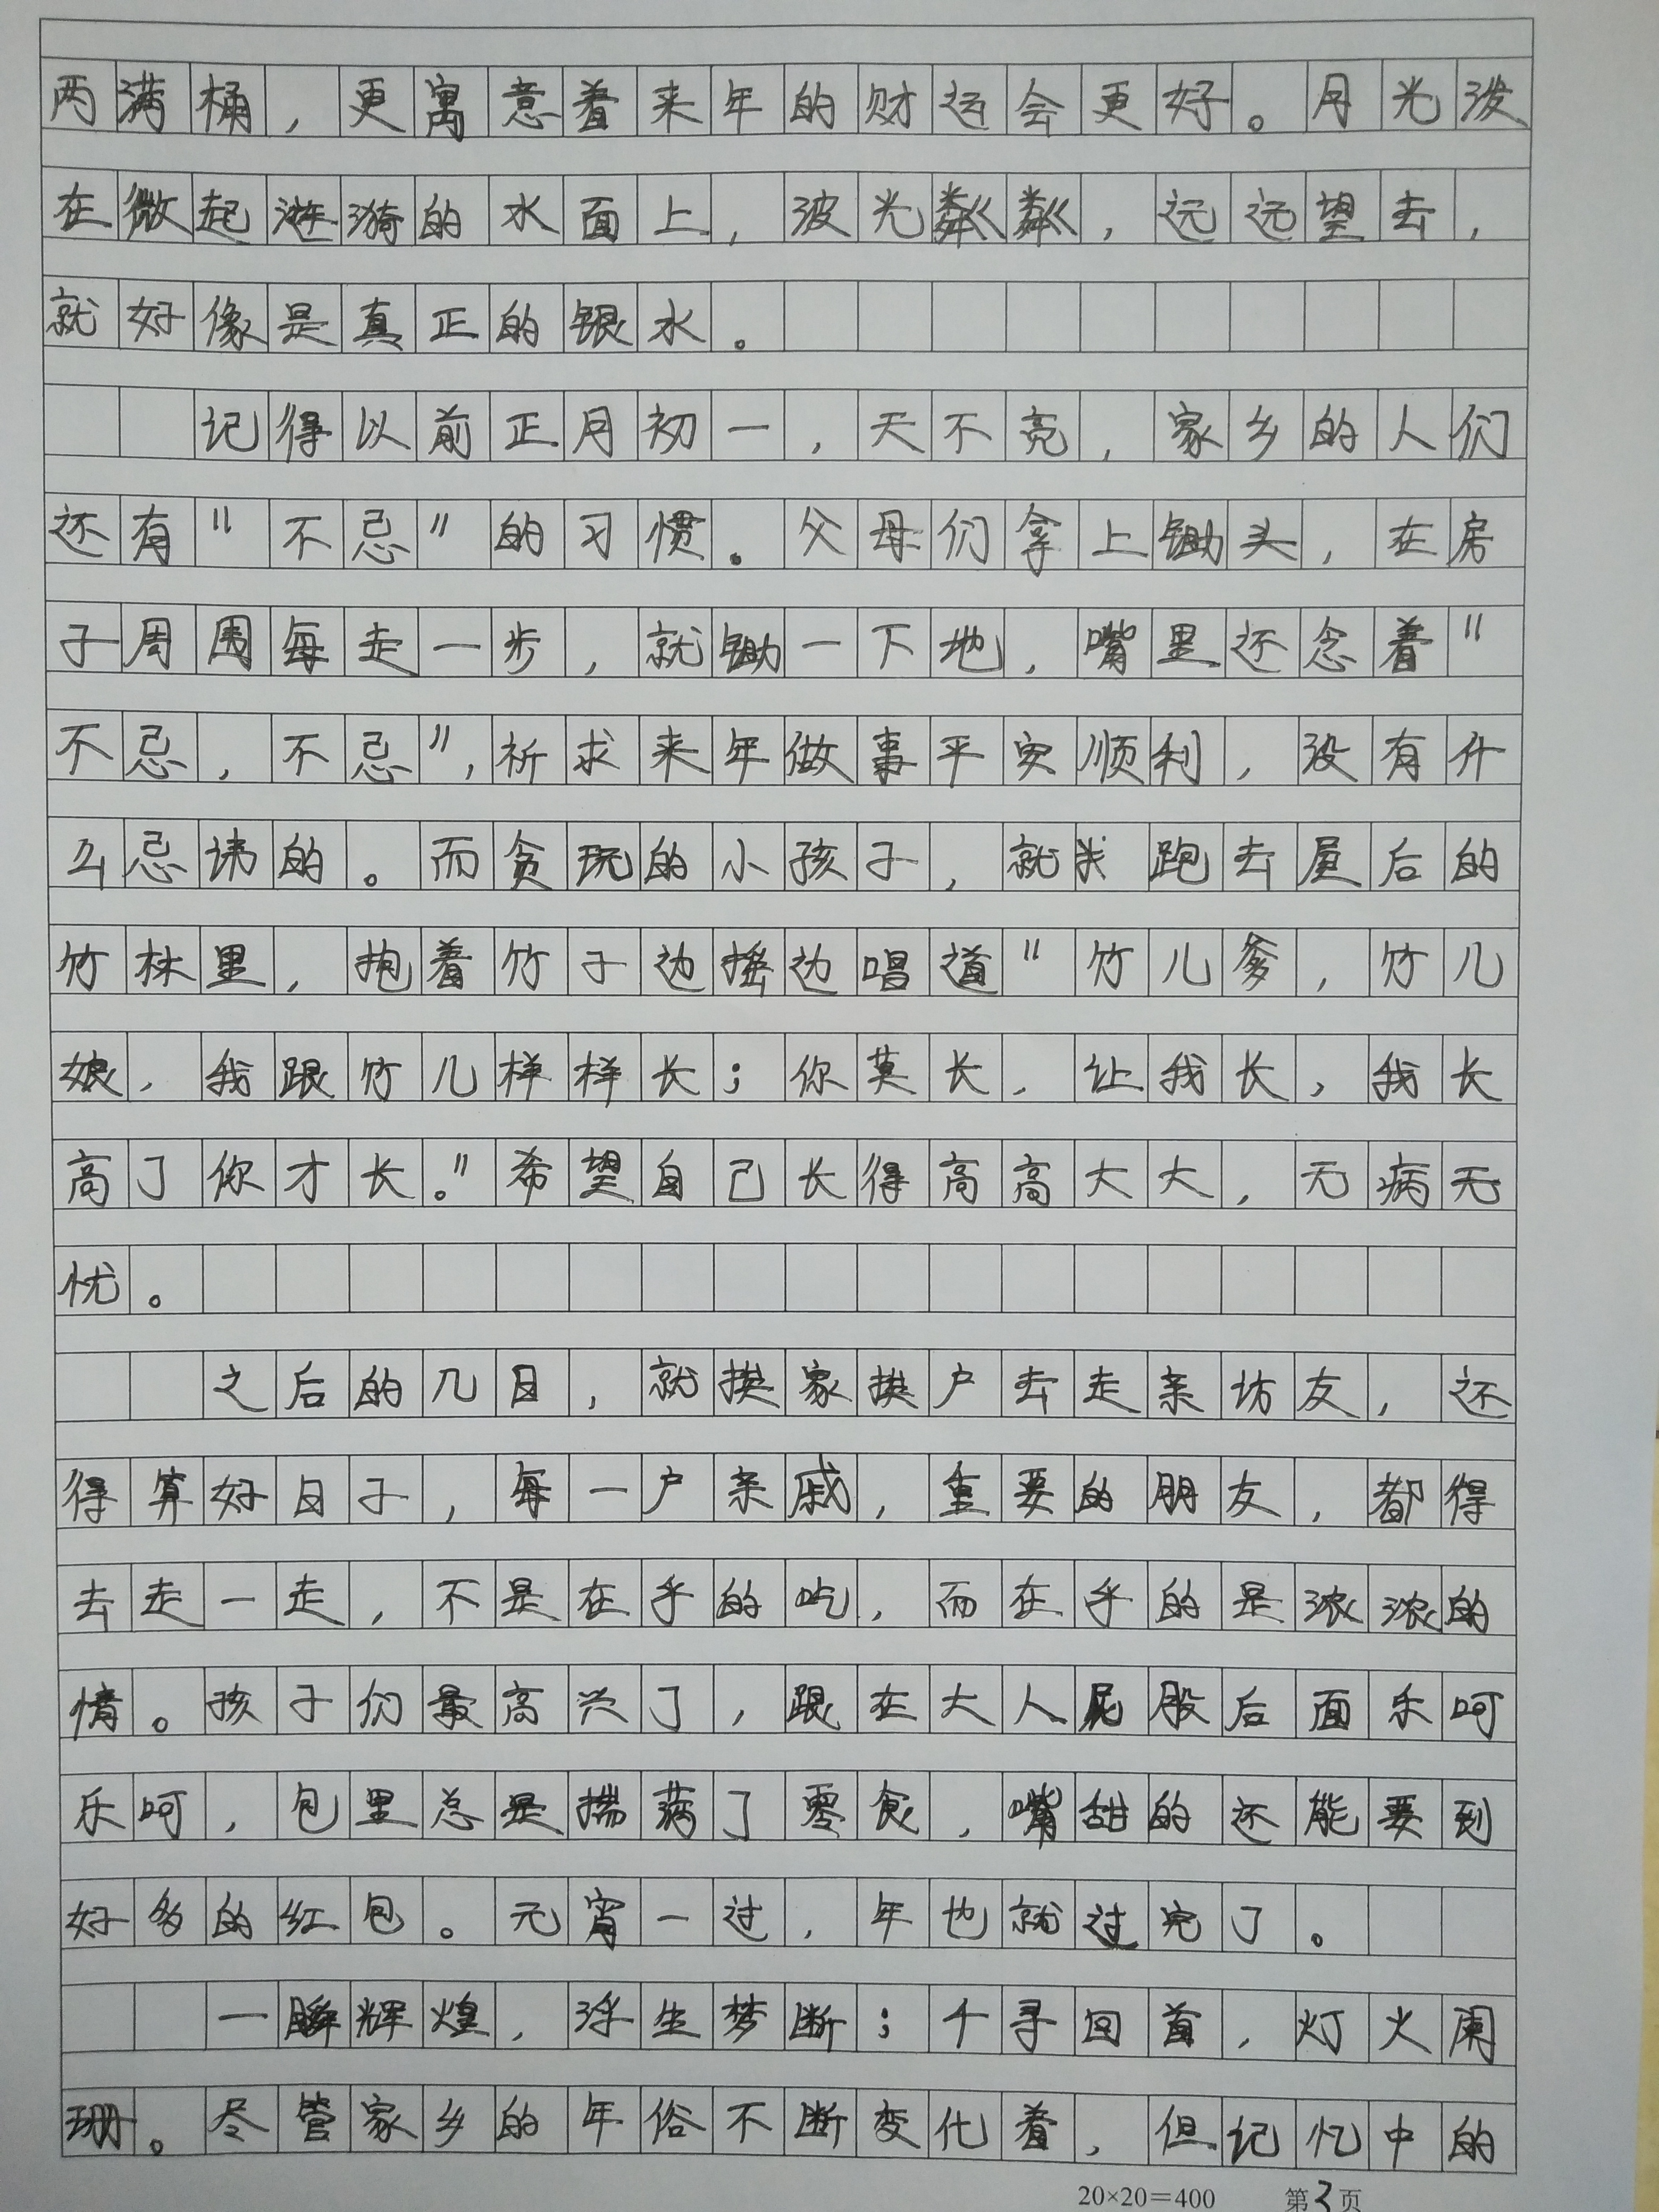 两满桶，更寓意着来年的财运会更好。月光泼
在微起涟漪的水面上，波光粼粼，远远望去，
就好像是真正的银水。
记得以前正月初一，天不亮，家乡的人们
还有"不忌"的习惯。父母们拿上锄头，在房
子周围每走一步，就锄一下地，嘴里还念着"
不忌，不忌"，祈求来年做事平安顺利，没有什
么忌讳的。而贪玩的小孩子，就光跑去屋后的
竹林里，抱着竹子边摇边唱道"竹儿爹，竹儿
娘，我跟竹儿样样长；你莫长，让我长，我长
高了你才长。"希望自己长得高高大大，无病无
忧。
之后的几日，就挨家挨户去走亲坊友，还
得算好日子，每一户亲戚，重要的朋友，都得
去走一走，不是在乎的吃，而在乎的是浓浓的
情。孩子们最高兴了，跟在大人屁股后面乐呵
乐呵，包里总是揣满了零食，嘴甜的还能要到
好多的红包。元宵一过，年也就过完了。
一瞬辉煌，浮生梦断；千寻回首，灯火阑
珊。尽管家乡的年俗不断变化着，但记忆中的
20×20=400 第3页